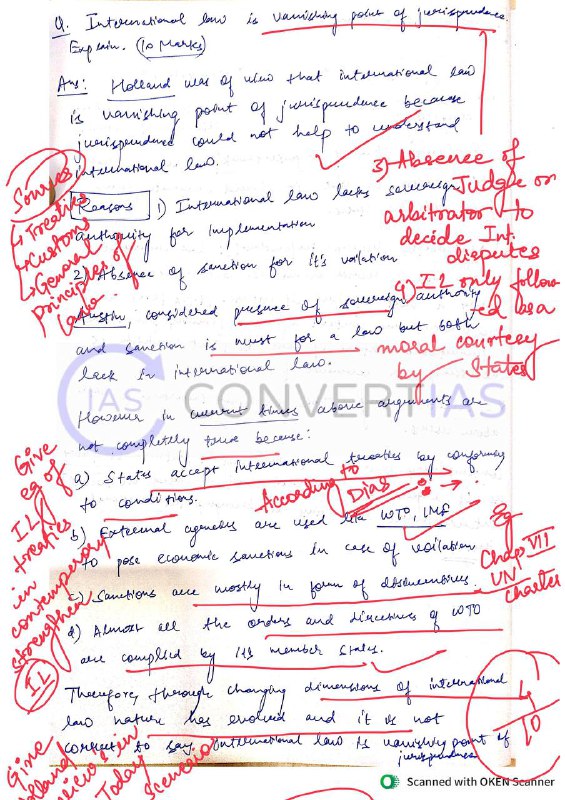 Q. International law is vanishing point of jurisprudence.
Explain. (10 Marks)
Ans: Holland was of view that international law
is vanishing point of jurisprudence because
jurisprudence could not help to understand
international law.
Sources
↳ Treaties
↳ Customs
↳ General
principles of
law.
Reasons 1) International law lacks sovereign
authority for implementation
2) Absence of sanction for it's voilation
3) Absence of
Judge or
arbitrator to
decide Int.
disputes
4) IL only follow
ed as a
moral courtesy
by States
Austin, considered presence of sovereign authority
and sanction is must for a law but both
lack in international law.
IAS CONVERTIAS
However in current times above arguments are
not completely true because:
a) States accept international treaties by conformity
to conditions.
According to
Dias
b) External agencies are used like WTO, IMF
to pose economic sanctions in case of voilation
Eg
Chap VII
UN
Charter
c) Sanctions are mostly in form of disincentives.
d) Almost all the orders and directives of WTO
are complied by its member states.
Give
eg of
IL
treaties
in
contemporary
strengthen
IL
Therefore, through changing dimensions of international
law nature has evolved and it is not
correct to say international law is vanishing point of
jurisprudence
4
10
Give
Holland
views in
Today
Scenario
Scanned with OKEN Scanner